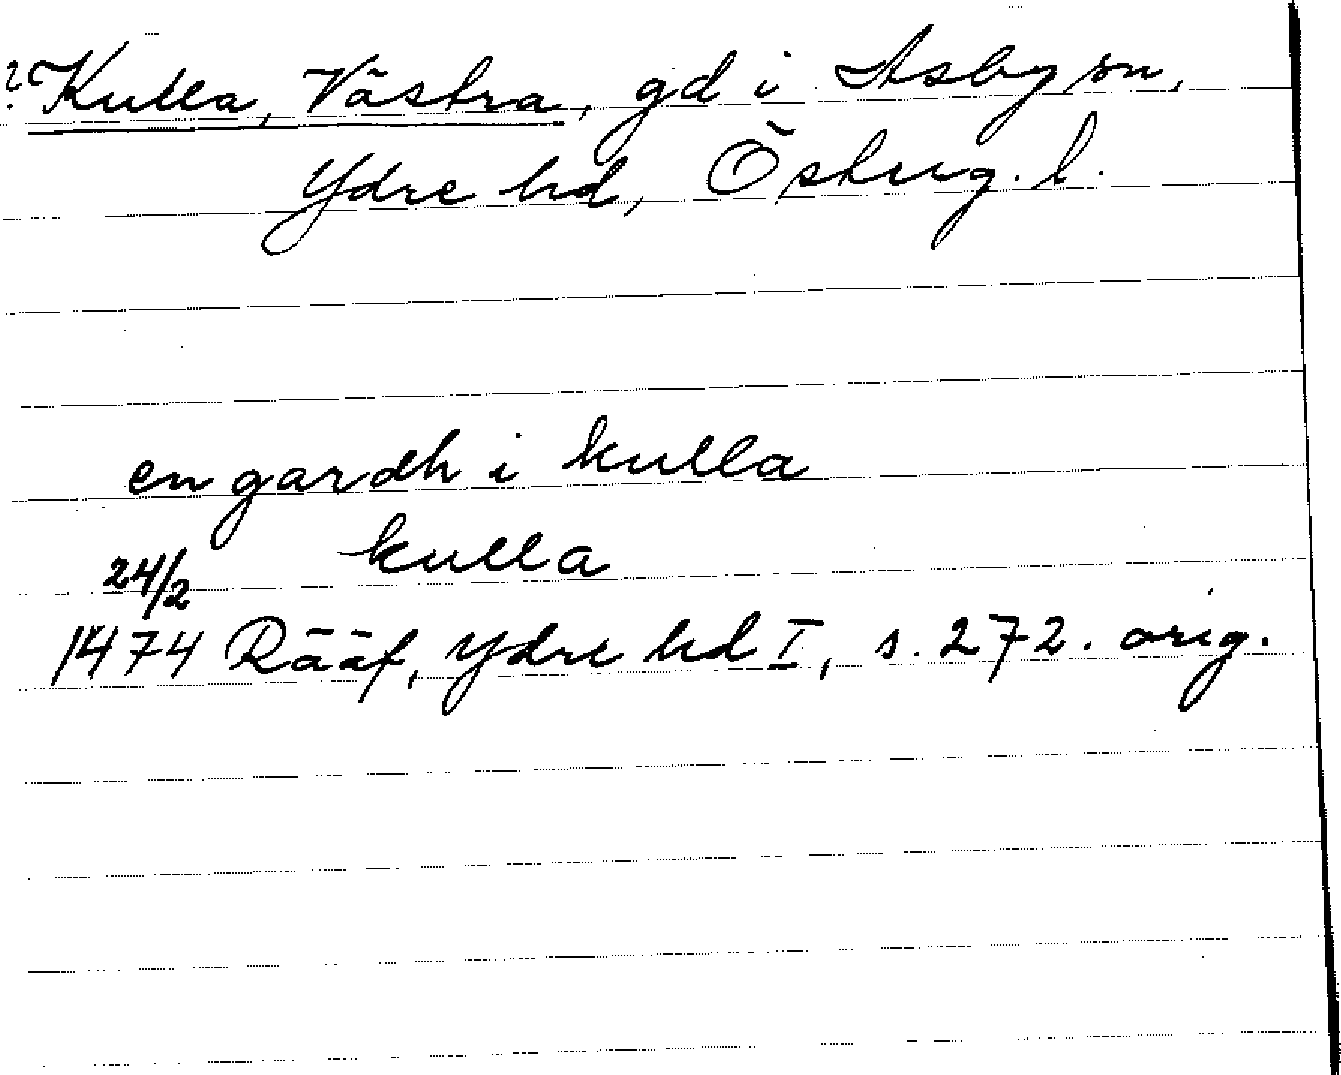 ? Kulla, Västra, gd i Asby sn,
Ydre hd, Österg. l.
en gardh i kulla
kulla
24/2
1474 Rääf, Ydre hd I, s. 272. orig.